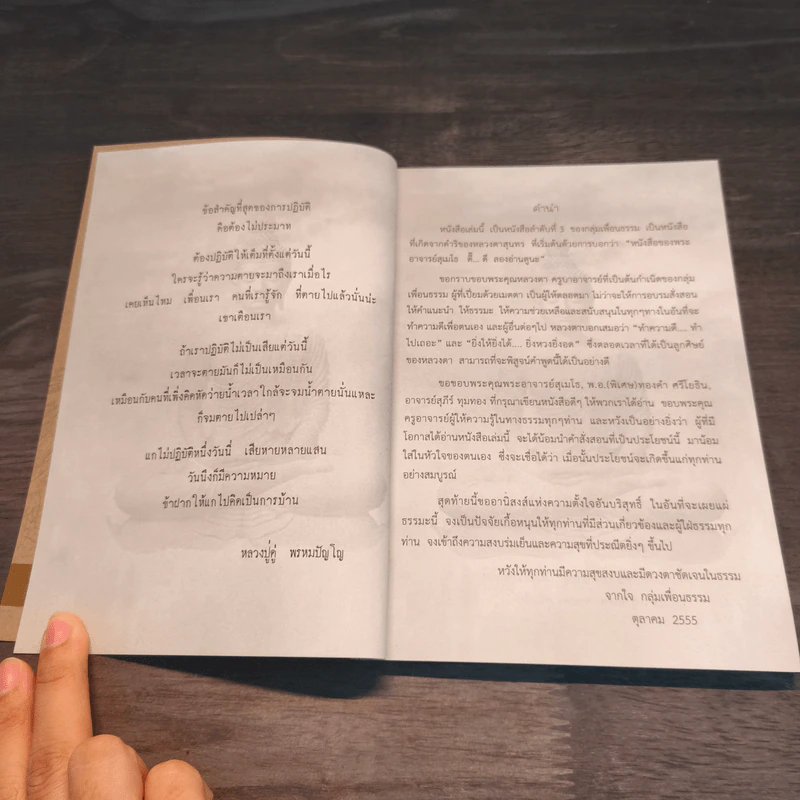 ข้อสำคัญที่สุดของการปฏิบัติ
คือต้องไม่ประมาท
ต้องปฏิบัติให้เต็มที่ตั้งแต่วันนี้
ใครจะรู้ว่าความตายจะมาถึงเราเมื่อไร
เคยเห็นไหม เพื่อนเรา คนที่เรารู้จัก ที่ตายไปแล้วนั่นน่ะ
เขาเตือนเรา
ถ้าเราปฏิบัติไม่เป็นเสียแต่วันนี้
เวลาจะตายมันก็ไม่เป็นเหมือนกัน
เหมือนกับคนที่เพิ่งคิดหัดว่ายน้ำเวลาใกล้จะจมน้ำตายนั่นแหละ
ก็จมตายไปเปล่าๆ
แกไม่ปฏิบัติหนึ่งวันนี่ เสียหายหลายแสน
วันนึงก็มีความหมาย
ข้าฝากให้แกไปคิดเป็นการบ้าน
หลวงปู่ดู่ พรหมปัญโญ
คำนำ
หนังสือเล่มนี้ เป็นหนังสือลำดับที่ 3 ของกลุ่มเพื่อนธรรม เป็นหนังสือ
ที่เกิดจากดำริของหลวงตาสุนทร ที่เริ่มต้นด้วยการบอกว่า “หนังสือของพระ
อาจารย์สุเมโธ ดี๊... ดี สองอ่านดูนะ”
ขอกราบขอบพระคุณหลวงตา ครูบาอาจารย์ที่เป็นต้นกำเนิดของกลุ่ม
เพื่อนธรรม ผู้ที่เปี่ยมด้วยเมตตา เป็นผู้ให้ตลอดมา ไม่ว่าจะให้การอบรมสั่งสอน
ให้คำแนะนำ ให้ธรรมะ ให้ความช่วยเหลือและสนับสนุนในทุกๆทางในอันที่จะ
ทำความดีเพื่อตนเอง และผู้อื่นต่อๆไป หลวงตาบอกเสมอว่า “ทำความดี.... ทำ
ไปเถอะ” และ “ยิ่งให้ยิ่งได้.... ยิ่งหวงยิ่งอด” ซึ่งตลอดเวลาที่ได้เป็นลูกศิษย์
ของหลวงตา สามารถที่จะพิสูจน์คำพูดนี้ได้เป็นอย่างดี
ขอขอบพระคุณพระอาจารย์สุเมโธ, พ.อ.(พิเศษ)ทองคำ ศรีโยธิน,
อาจารย์สุภีร์ ทุมทอง ที่กรุณาเขียนหนังสือดีๆ ให้พวกเราได้อ่าน ขอบพระคุณ
ครูอาจารย์ผู้ให้ความรู้ในทางธรรมทุกๆท่าน และหวังเป็นอย่างยิ่งว่า ผู้ที่มี
โอกาสได้อ่านหนังสือเล่มนี้ จะได้น้อมนำคำสั่งสอนที่เป็นประโยชน์นี้ มาน้อม
ใส่ในหัวใจของตนเอง ซึ่งจะเชื่อได้ว่า เมื่อนั้นประโยชน์จะเกิดขึ้นแก่ทุกท่าน
อย่างสมบูรณ์
สุดท้ายนี้ขออานิสงส์แห่งความตั้งใจอันบริสุทธิ์ ในอันที่จะเผยแผ่
ธรรมะนี้ จงเป็นปัจจัยเกื้อหนุนให้ทุกท่านที่มีส่วนเกี่ยวข้องและผู้ใฝ่ธรรมทุก
ท่าน จงเข้าถึงความสงบร่มเย็นและความสุขที่ประณีตยิ่งๆ ขึ้นไป
หวังให้ทุกท่านมีความสุขสงบและมีดวงตาชัดเจนในธรรม
จากใจ กลุ่มเพื่อนธรรม
ตุลาคม 2555